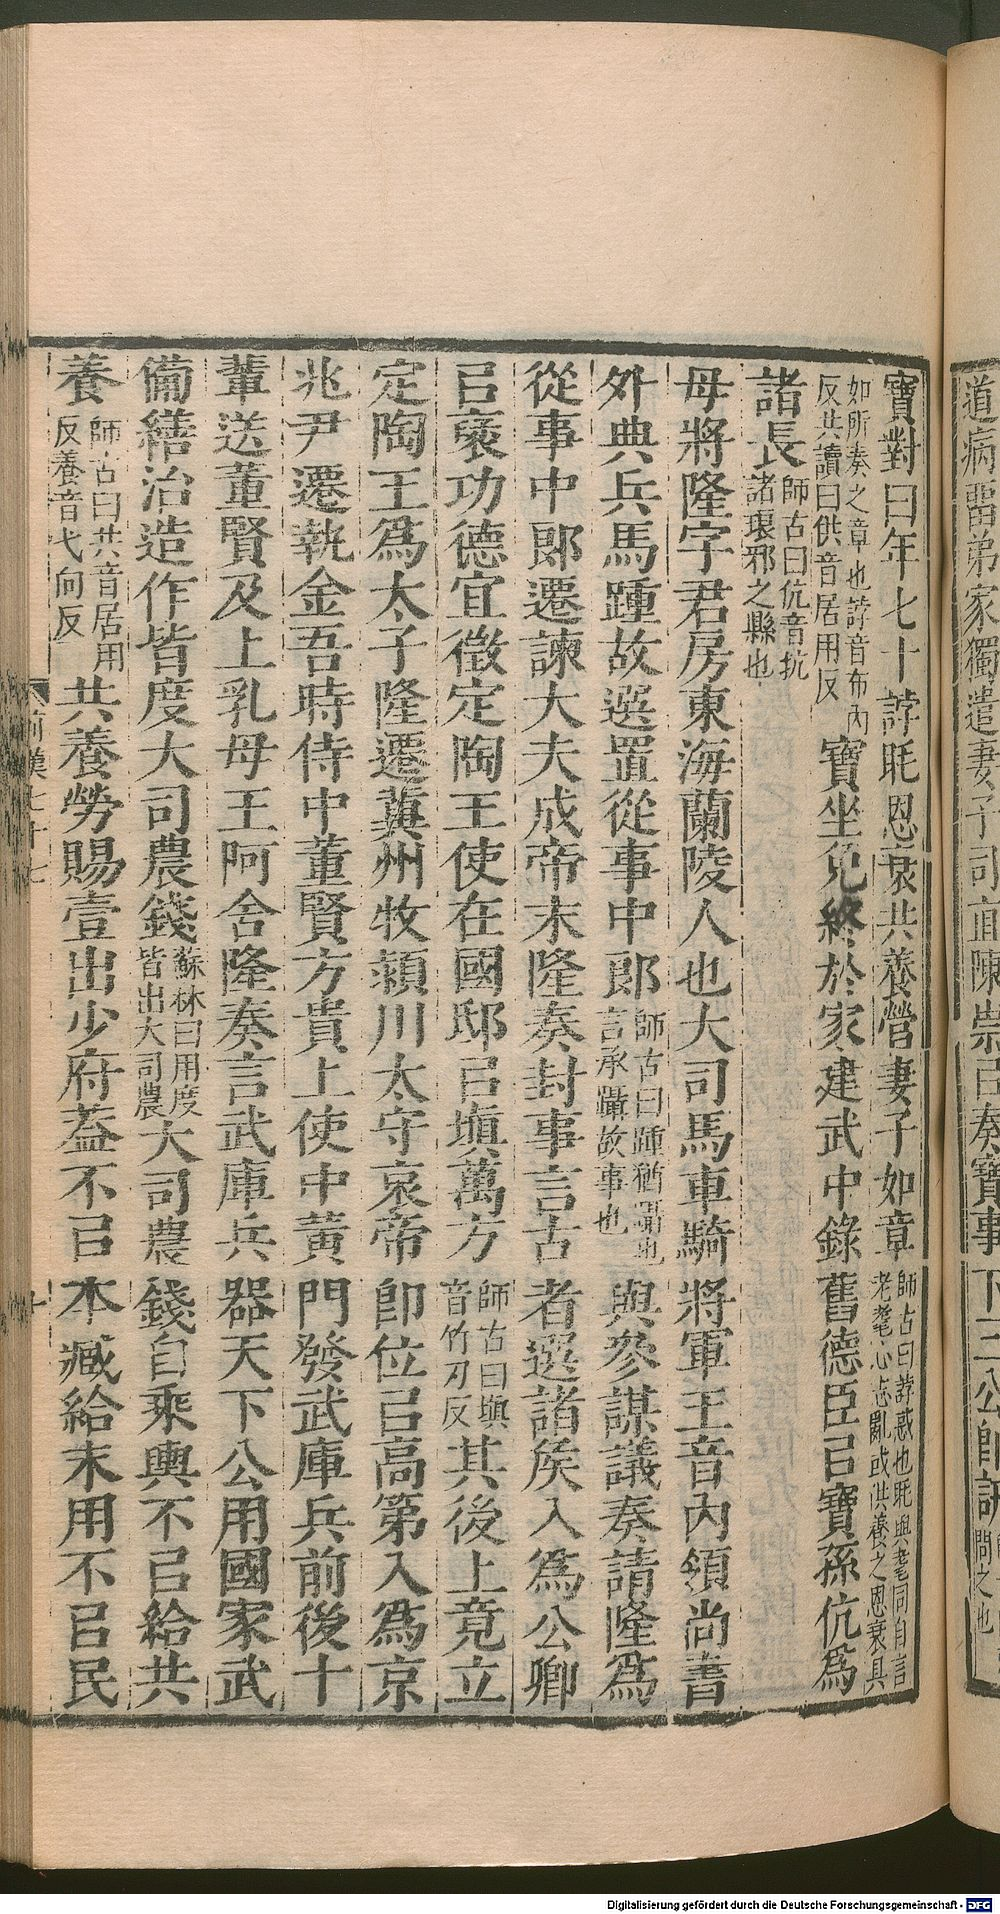 道病留弟家獨遣妻子司直陳崇㠯奏寶事下三公卽訊問之也
寶對曰年七十誖眊恩衰共養營妻子如章師古曰誖惑也眊與耄同自言老耄心志亂或供養之恩衰具
如所奏之章也誖音布內反共讀曰供音居用反寶坐免終於家建武中錄舊德臣㠯寶孫伉爲
諸長師古曰伉音抗諸琅邪之縣也
母將隆字君房東海蘭陵人也大司馬車騎將軍王音內領尚書
外典兵馬踵故選置從事中郎師古曰踵猶躡也言承躡故事也與參謀議奏請隆爲
從事中郎遷諫大夫成帝末隆奏封事言古者選諸侯入爲公卿
㠯襃功德宜徵定陶王使在國邸㠯塡萬方師古曰塡音竹刃反其後上竟立
定陶王爲太子隆遷冀州牧潁川太守哀帝卽位㠯高第入爲京
兆尹遷執金吾時侍中董賢方貴上使中黃門發武庫兵前後十
輩送董賢及上乳母王阿舍隆奏言武庫兵器天下公用國家武
備繕治造作皆度大司農錢蘇林曰用度皆出大司農大司農錢自乘輿不㠯給共
養師古曰共音居用反養音弋向反共養勞賜壹出少府蓋不㠯本臧給末用不㠯民
前漢七十七
十
Digitalisierung gefördert durch die Deutsche Forschungsgemeinschaft - DFG